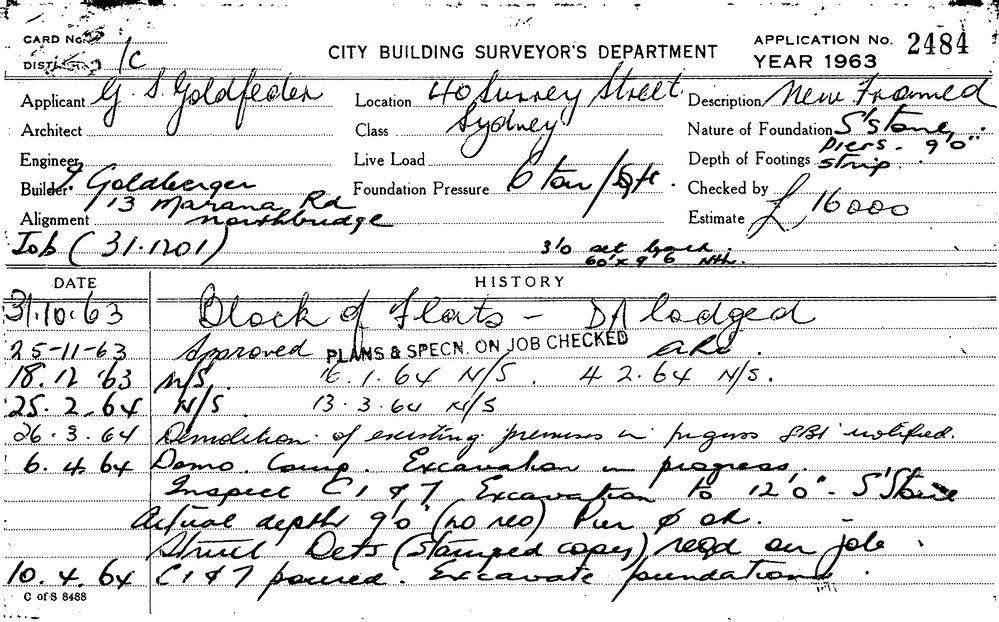 CARD No.
DIST. 1C
CITY BUILDING SURVEYOR'S DEPARTMENT
APPLICATION No. 2484
YEAR 1963
Applicant G. S. Goldfeder
Location 40 Surrey Street
Sydney
Description New Framed
Architect
Class
Nature of Foundation S'stone
Piers. 9'0"
Engineer
Live Load
Depth of Footings strip.
Builder Goldberger
13 Marana Rd
Northbridge
Foundation Pressure 6 ton/sq ft.
Checked by
Alignment
Estimate £16000
Job (31.1201)
3'0 set back.
60' x 9'6 Nth.
DATE HISTORY
31.10.63 Block of Flats - DA lodged
25-11-63 Approved PLANS & SPECN. ON JOB CHECKED
18.12.63 N/S. 16.1.64 N/S. 4.2.64 N/S.
25.2.64 N/S. 13.3.64 N/S
26.3.64 Demolition of existing premises in progress notified.
6.4.64 Demo. Comp. Excavation in progress.
Inspect C 1 & 7 Excavation to 12'0" - S'Stone
Actual depth 9'0" (no reo) Pier ϕ ok.
Struct Dets (stamped copy) reqd on job.
10.4.64 C 1 & 7 poured. Excavate foundations.
C of S 8488